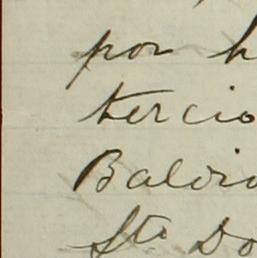 por h
tercio
Baldri
Sto Do